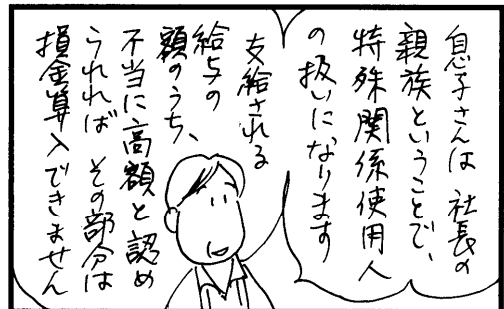 息子さんは 社長の
親族ということで、
特殊関係使用人
の扱いになります
支給される
給与の
額のうち、
不当に高額と認め
られれば その部分は
損金算入できません